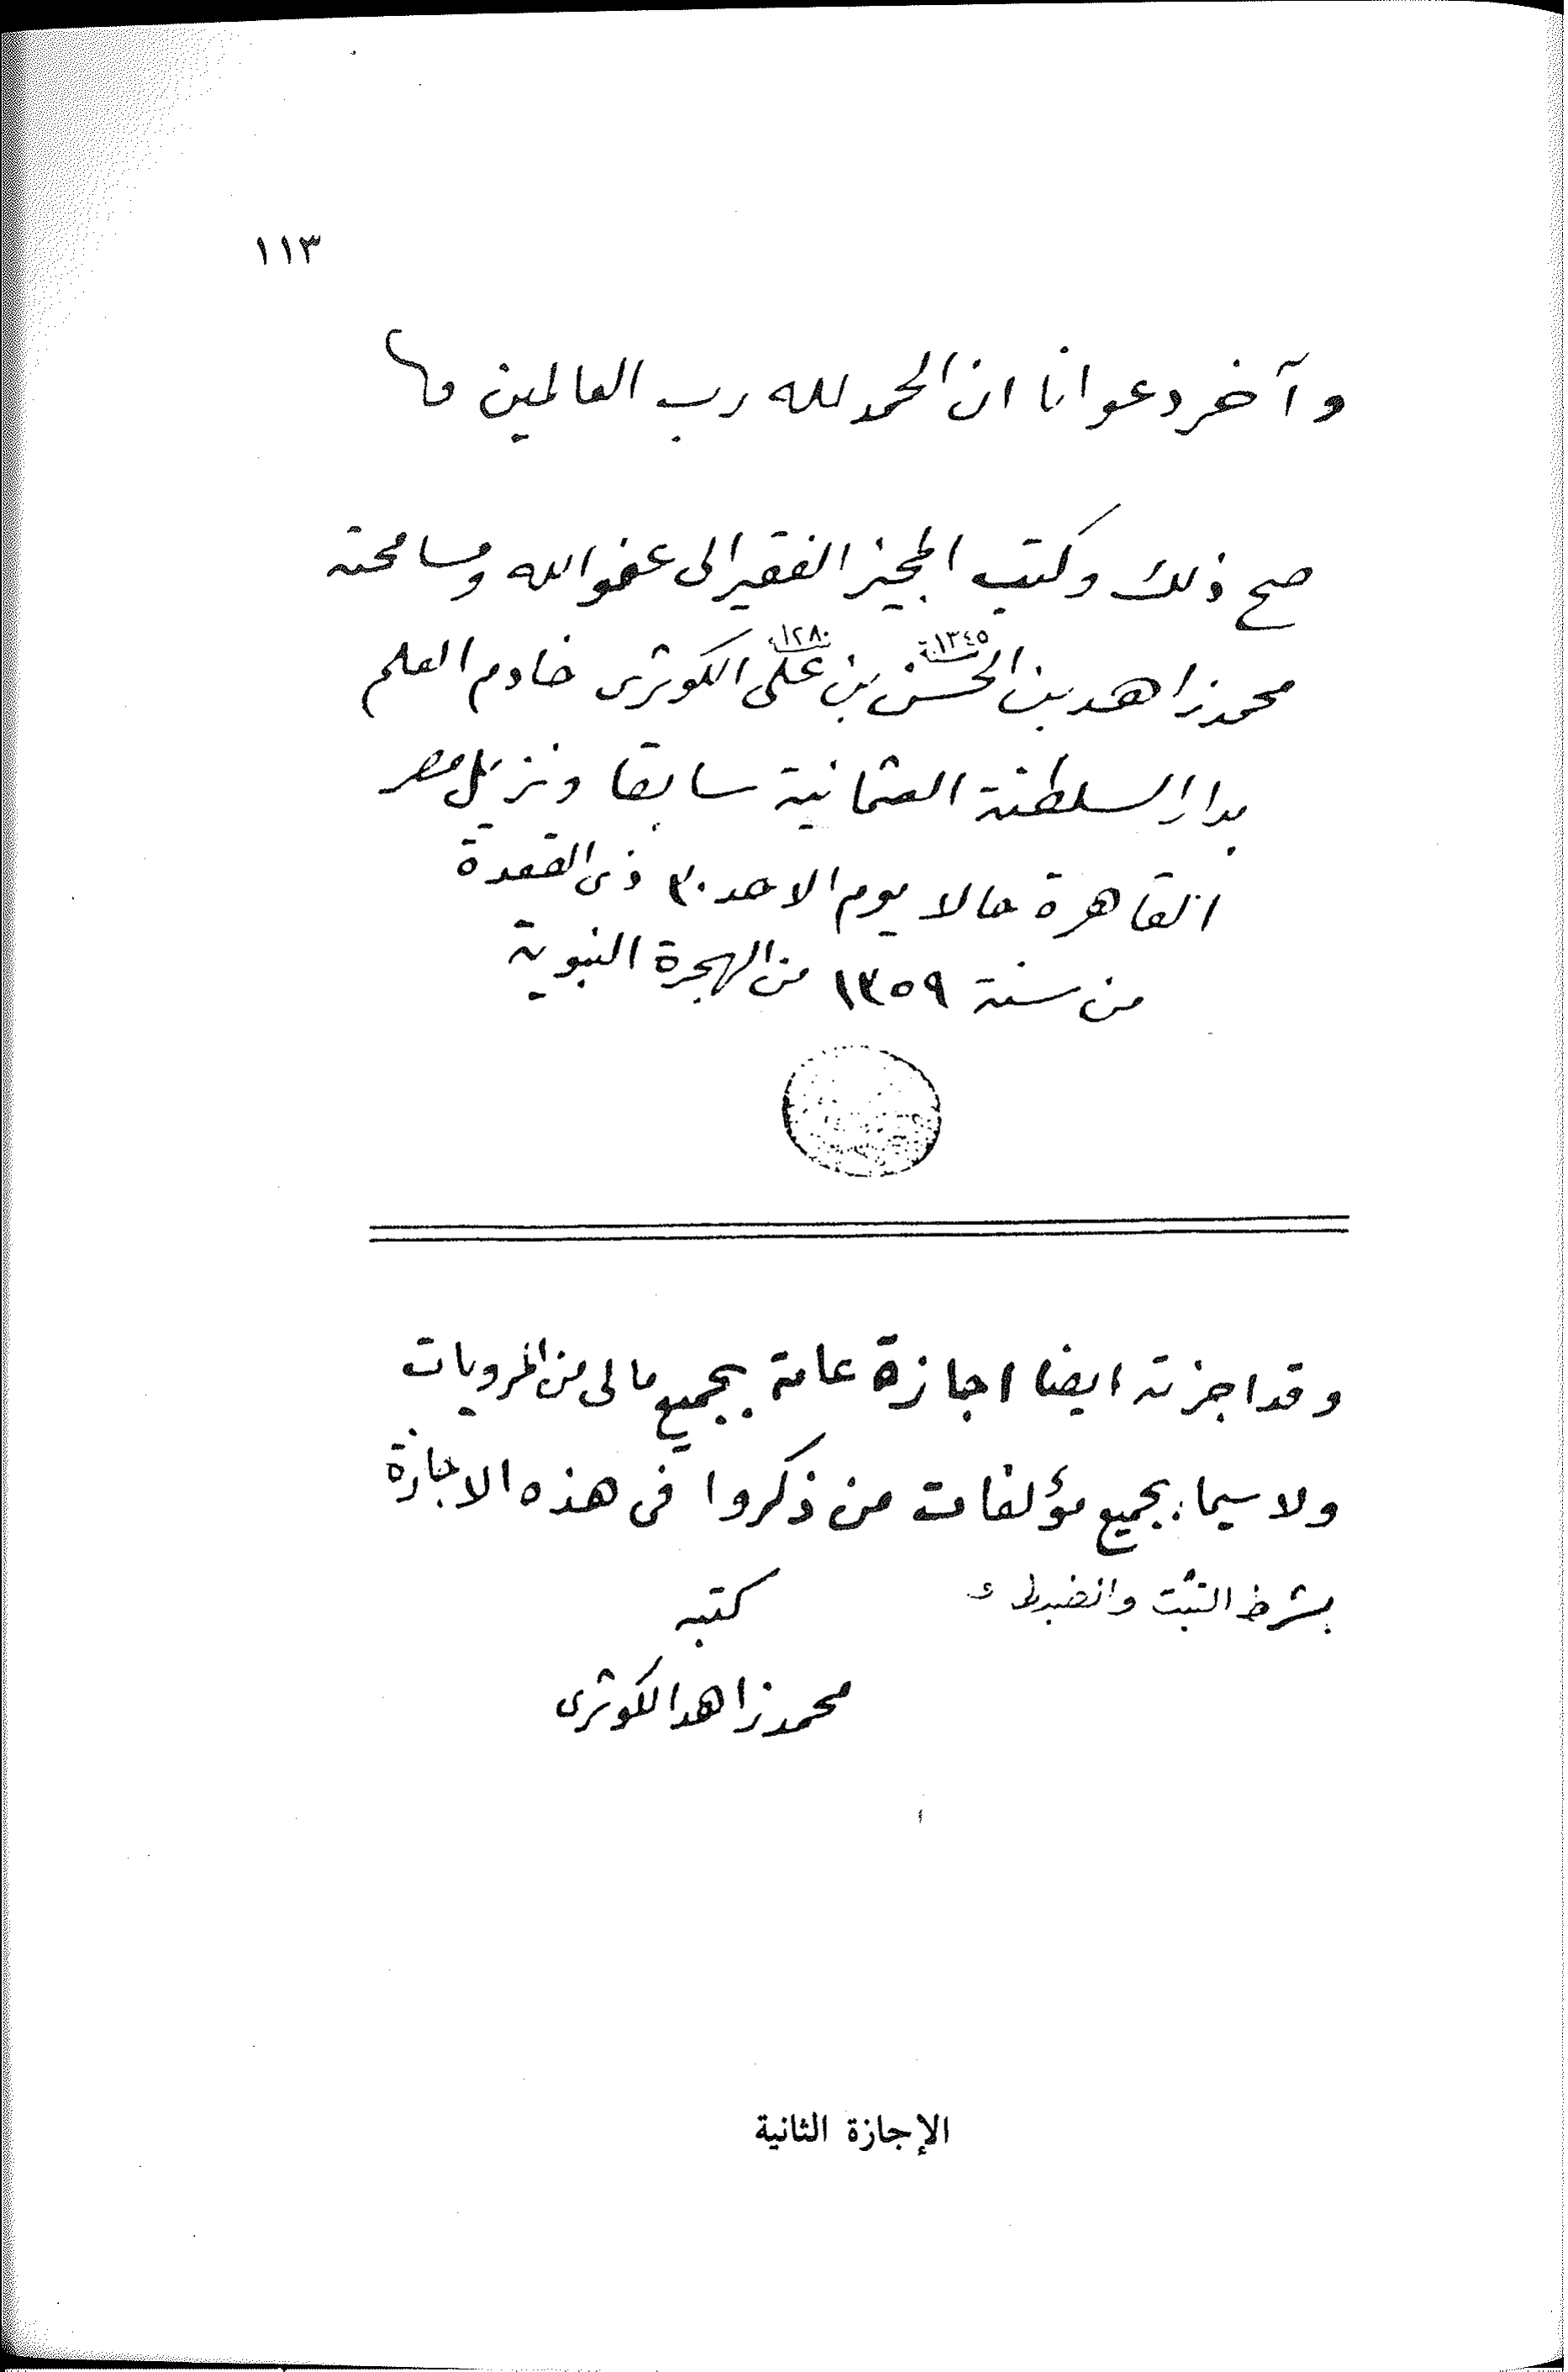 ١١٣
وآخر دعوانا ان الحمد لله رب العالمين
صح ذلك وكتب المجيز الفقير الى عفو الله ومسامحته
سنة ١٣٤٥ سنة ١٢٨٠
محمد زاهد بن الحسن بن على الكوثرى خادم العلم
بدار السلطنة العثمانية سابقا ونزيل مصر
القاهرة حالا يوم الاحد ٣٠ ذى القعدة
من سنة ١٣٥٩ من الهجرة النبوية
وقد اجزته ايضا اجازة عامة بجميع مالى من المرويات
ولا سيما بجميع مؤلفات من ذكروا فى هذه الاجازة
بشرط التثبت والضبط
كتبه
محمد زاهد الكوثرى
الإجازة الثانية